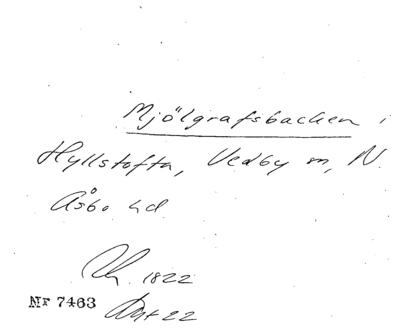 Mjölgrafsbacken i
Hyllstofta, Vedby m, N.
Åsbo hd
1822
Nr 7463
22